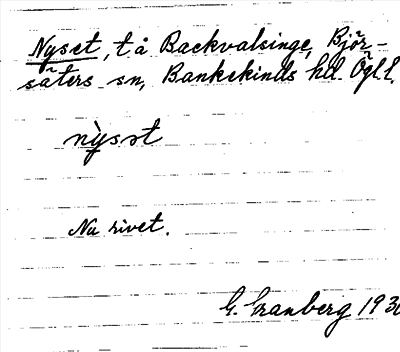 Nyset, t å Backvalsinge, Björ-
säters sn, Bankekinds hd. Ögl.
nỳsɛt
Nu rivet.
G. Granberg 193